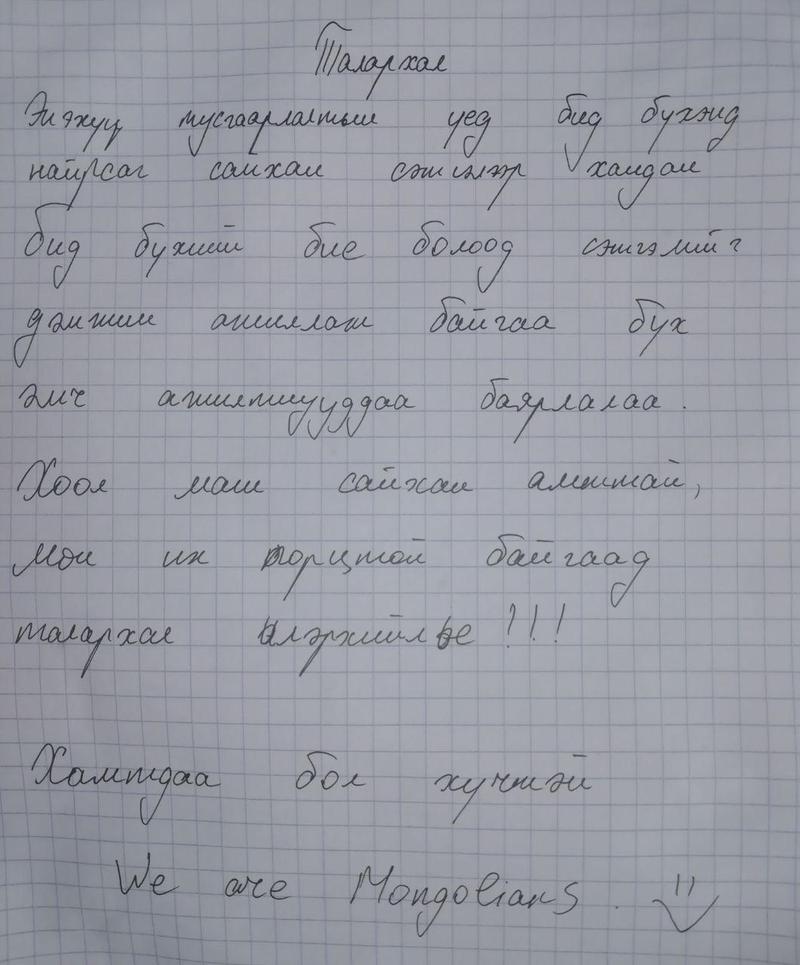 Талархал
Энэхүү тусгаарлалтын үед бид бүхэнд
найрсаг сайхан сэтгэлээр хандан
бид бүхний бие болоод сэтгэлийг
дэмжин ажиллаж байгаа бүх
эмч ажилтнууддаа баярлалаа.
Хоол маш сайхан амттай,
мөн их порцтой байгаад
талархал илэрхийлье!!!
Хамтдаа бол хүчтэй
We are Mongolians.